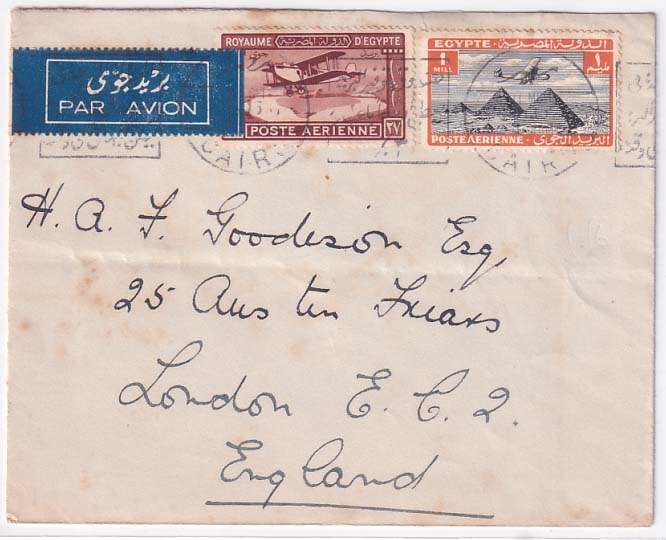 بريد جوى
PAR AVION
ROYAUME الدولة المصرية D'EGYPTE
POSTE AÉRIENNE ٢٧
EGYPTE الدولة المصرية
1 MILL
١ مليم
POSTE AÉRIENNE البريد الجوى
CAIRO
CAIRO
H. A. F. Goodeson Esq,
25 Austen Friars
London E. C. 2.
England